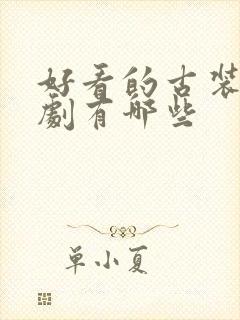 好看的古装
劇有哪些
单小夏